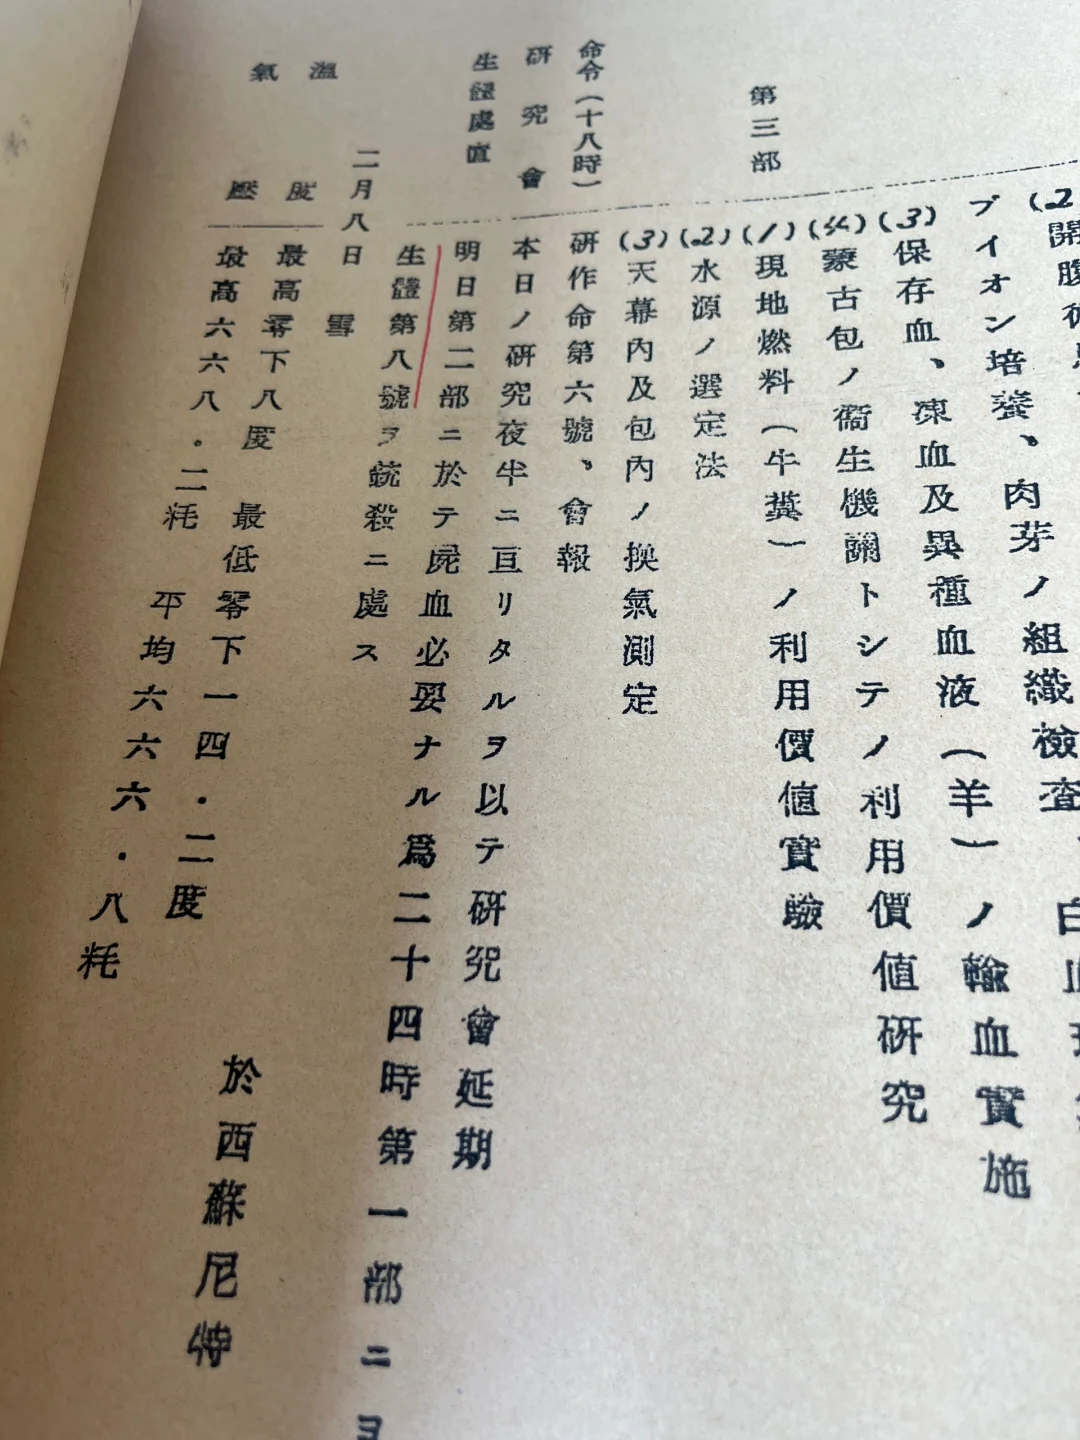 (2)
開腹術
ブイオン培養、肉芽ノ組織検査、白血球
(3) 保存血、凍血及異種血液(羊)ノ輸血實施
(4) 蒙古包ノ衞生機關トシテノ利用價値研究
第三部
(1) 現地燃料(牛糞)ノ利用價値實驗
(2) 水源ノ選定法
(3) 天幕內及包內ノ換氣測定
命令(十八時)
研作命第六號、會報
研究會
本日ノ研究夜半ニ亘リタルヲ以テ研究會延期
生體處置
明日第二部ニ於テ屍血必要ナル爲二十四時第一部ニヨ
生體第八號ヲ銃殺ニ處ス
二月八日 雪
溫度
最高零下八度 最低零下一四.二度
氣壓
最高六六八.二粍 平均六六六.八粍
於西蘇尼特